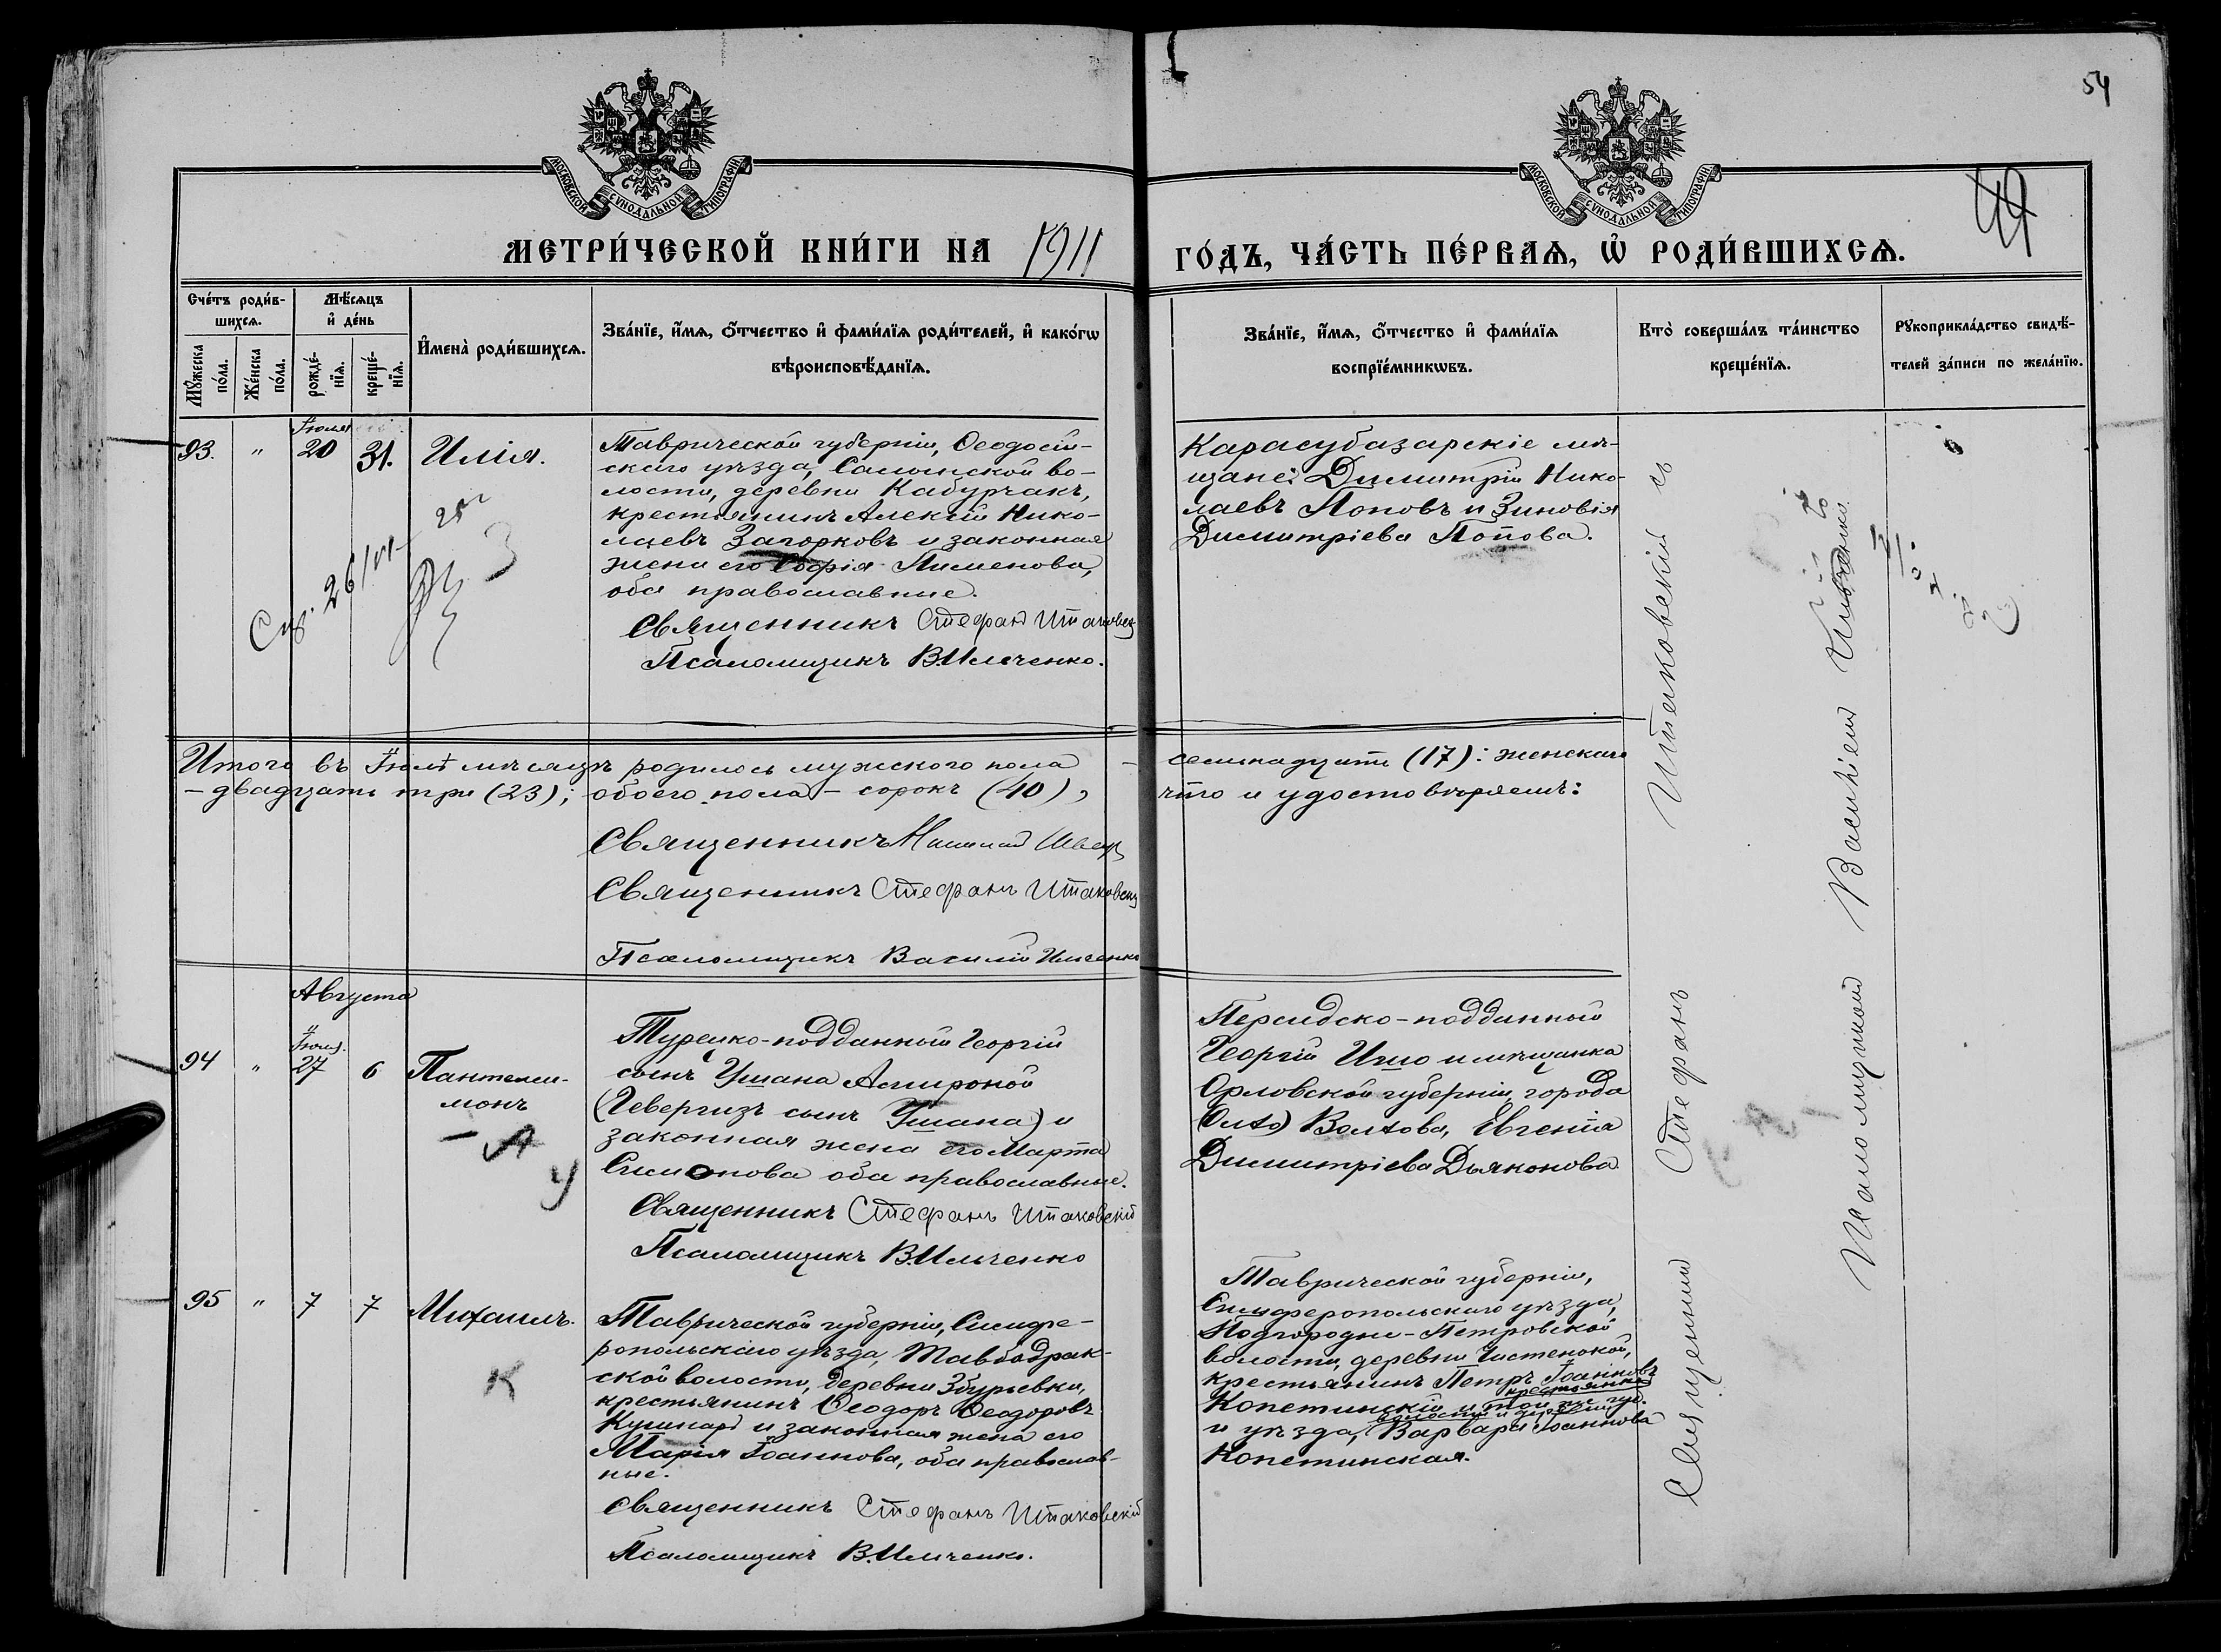 54
49
МОСКОВСКОЙ СѴНОДАЛЬНОЙ ТИПОГРАФІИ
МОСКОВСКОЙ СѴНОДАЛЬНОЙ ТИПОГРАФІИ
МЕТРИ́ЧЕСКОЙ КНИ́ГИ НА 1911
ГО́ДЪ, ЧА́СТЬ ПЕ́РВАѦ, Ѡ҆ РОДИ́ВШИХСѦ.
Сче́тъ роди́в-
шихсѧ.
Мѣ́сѧцъ
и҆ де́нь
Мꙋ́жеска
по́ла.
Же́нска
по́ла.
рожде́-
нїѧ.
креще́-
нїѧ.
И҆мена̀ роди́вшихсѧ.
Зва́нїе, и҆́мѧ, ѻ҆́тчество и҆ фами́лїѧ роди́телей, и҆ како́гѡ
вѣроисповѣ́данїѧ.
Зва́нїе, и҆́мѧ, ѻ҆́тчество и҆ фами́лїѧ
воспрїе́мникѡвъ.
Кто̀ соверша́лъ та́инство
креще́нїѧ.
Рꙋкоприкла́дство свидѣ́-
телей за́писи по жела́нїю.
Іюля
93. " 20 31. Илія.
Таврической губерніи, Ѳеодосій-
скаго уѣзда, Салынской во-
лости, деревни Кабурчакъ,
крестьянинъ Алексій Нико-
лаевъ Загорковъ и законная
жена его Софія Пименова,
оба православные.
Священникъ Стефанъ Штаковскій
Псаломщикъ В.Ильченко.
Карасубазарскіе мѣ-
щане: Димитрій Нико-
лаевъ Поповъ и Зиновія
Димитріева Попова.
Итого въ Іюлѣ мѣсяцѣ родилось мужского пола – семнадцать (17): женскаго
– двадцать три (23); обоего пола – сорокъ (40), что и удостовѣряемъ:
Священникъ
Священникъ Стефанъ Штаковскій
Псаломщикъ Василій Ильченко
Августа
Іюля.
94 " 27 6 Пантелеи-
монъ
А
У
Турецко-подданный Георгій
сынъ Ушана
(Гевергизъ сынъ Ушана) и
законная жена его Марта
Симонова оба православные.
Священникъ Стефанъ Штаковскій
Псаломщикъ В.Ильченко
Персидско-подданный
Георгій Ишо и мѣщанка
Орловской губерніи, города
Волхова, Евгенія
Димитріева Дьяконова
95 " 7 7 Михаилъ.
К
Таврической губерніи, Симфе-
ропольскаго уѣзда, Тавбодрак-
ской волости, деревни Збурьевки,
крестьянинъ Ѳеодоръ Ѳеодоровъ
Кушнарь и законная жена его
Марія Іоаннова, оба православ-
ные.
Священникъ Стефанъ Штаковскій
Псаломщикъ В.Ильченко.
Таврической губерніи,
Симферопольскаго уѣзда,
Подгородне-Петровской
волости, деревни Чистенокой,
крестьянинъ Петръ Іоанновъ
Копетинскій и той же губ.
крестьянка
волости и деревни
и уѣзда, Варвара Іоаннова
Копетинская.
Священникъ Стефанъ Штаковскій съ
Псаломщикомъ Василіемъ Ильченко.